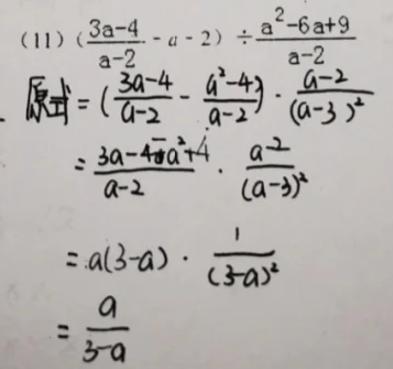 (11) (\frac{3a-4}{a-2} - a - 2) ÷ \frac{a^2-6a+9}{a-2}
原式 = (\frac{3a-4}{a-2} - \frac{a^2-4}{a-2}) · \frac{a-2}{(a-3)^2}
= \frac{3a-4-a^2+4}{a-2} · \frac{a-2}{(a-3)^2}
= a(3-a) · \frac{1}{(3-a)^2}
= \frac{a}{3-a}